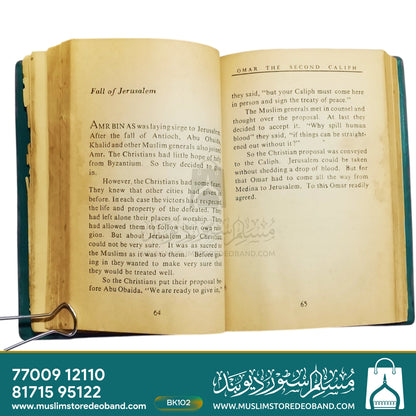 Fall of Jerusalem
AMR BIN AS was laying siege to Jerusalem.
After the fall of Antioch, Abu Obaida,
Khalid and other Muslim generals also joined
Amr. The Christians had little hope of help
from Byzantium. So they decided to give
in.
However, the Christians had some fears.
They knew that other cities had given in
before. In each case the victors had respected
the life and property of the defeated. They
had left alone their places of worship. They
had allowed them to follow their own reli-
gion. But about Jerusalem the Christians
could not be very sure. It was as sacred to
the Muslims as it was to them. Before giv-
ing in they wanted to make very sure that
they would be treated well.
So the Christians put their proposal be-
fore Abu Obaida, "We are ready to give in,"
64
OMAR THE SECOND CALIPH
they said, "but your Caliph must come here
in person and sign the treaty of peace."
The Muslim generals met in counsel and
thought over the proposal. At last they
decided to accept it. "Why spill human
blood" they said, "if things can be straight-
ened out without it?"
So the Christian proposal was conveyed
to the Caliph. Jerusalem could be taken
without shedding a drop of blood. But for
that Omar had to come all the way from
Medina to Jerusalem. To this Omar readily
agreed.
65
مسلم سٹور دیوبند
WWW.MUSLIMSTOREDEOBAND.COM
77009 12110
81715 95122
BK102
مسلم سٹور دیوبند
www.muslimstoredeoband.com